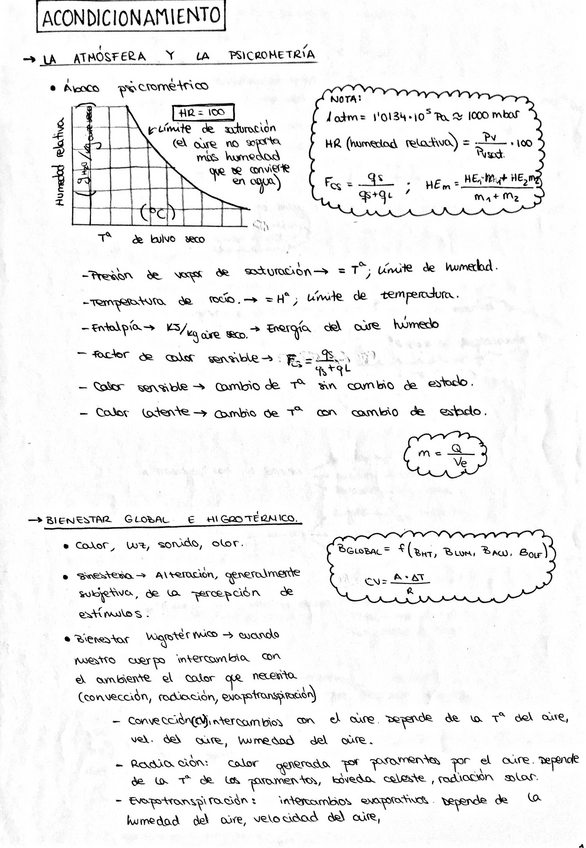 ACONDICIONAMIENTO
→ LA ATMÓSFERA Y LA PSICROMETRÍA
• Ábaco psicrométrico
Humedad relativa
(g H2O/kg aire seco)
HR = 100
Límite de saturación
(el aire no soporta
más humedad
que se convierte
en agua)
(°C)
Tª de bulvo seco
NOTA:
1 atm = 1'0134·10⁵ Pa ≈ 1000 mbar
HR (humedad relativa) = Pv / Pv sat. · 100
Fcs = qs / qs+qL ; HEm = HE1·m1+HE2·m2 / m1+m2
- Presión de vapor de saturación → = Tª; límite de humedad.
- Temperatura de rocío. → = Hª; límite de temperatura.
- Entalpía → KJ/kg aire seco. → Energía del aire húmedo
- Factor de calor sensible → Fcs = qs / qs+qL
- Calor sensible → cambio de Tª sin cambio de estado.
- Calor latente → cambio de Tª con cambio de estado.
m = Q / Ve
→ BIENESTAR GLOBAL E HIGROTÉRMICO.
• Calor, luz, sonido, olor.
• Sinestesia → Alteración, generalmente
subjetiva, de la percepción de
estímulos.
BGLOBAL = f (BHT, BLUM, BACU, BOLF)
CV = A·ΔT / R
• Bienestar higrotérmico → cuando
nuestro cuerpo intercambia con
el ambiente el calor que necesita
(convección, radiación, evapotranspiración)
- Convección(CV): intercambios con el aire. Depende de la Tª del aire,
vel. del aire, humedad del aire.
- Radiación: calor generada por paramentos por el aire. Depende
de la Tª de los paramentos, bóveda celeste, radiación solar.
- Evapotranspiración: intercambios evaporativos. Depende de la
humedad del aire, velocidad del aire,